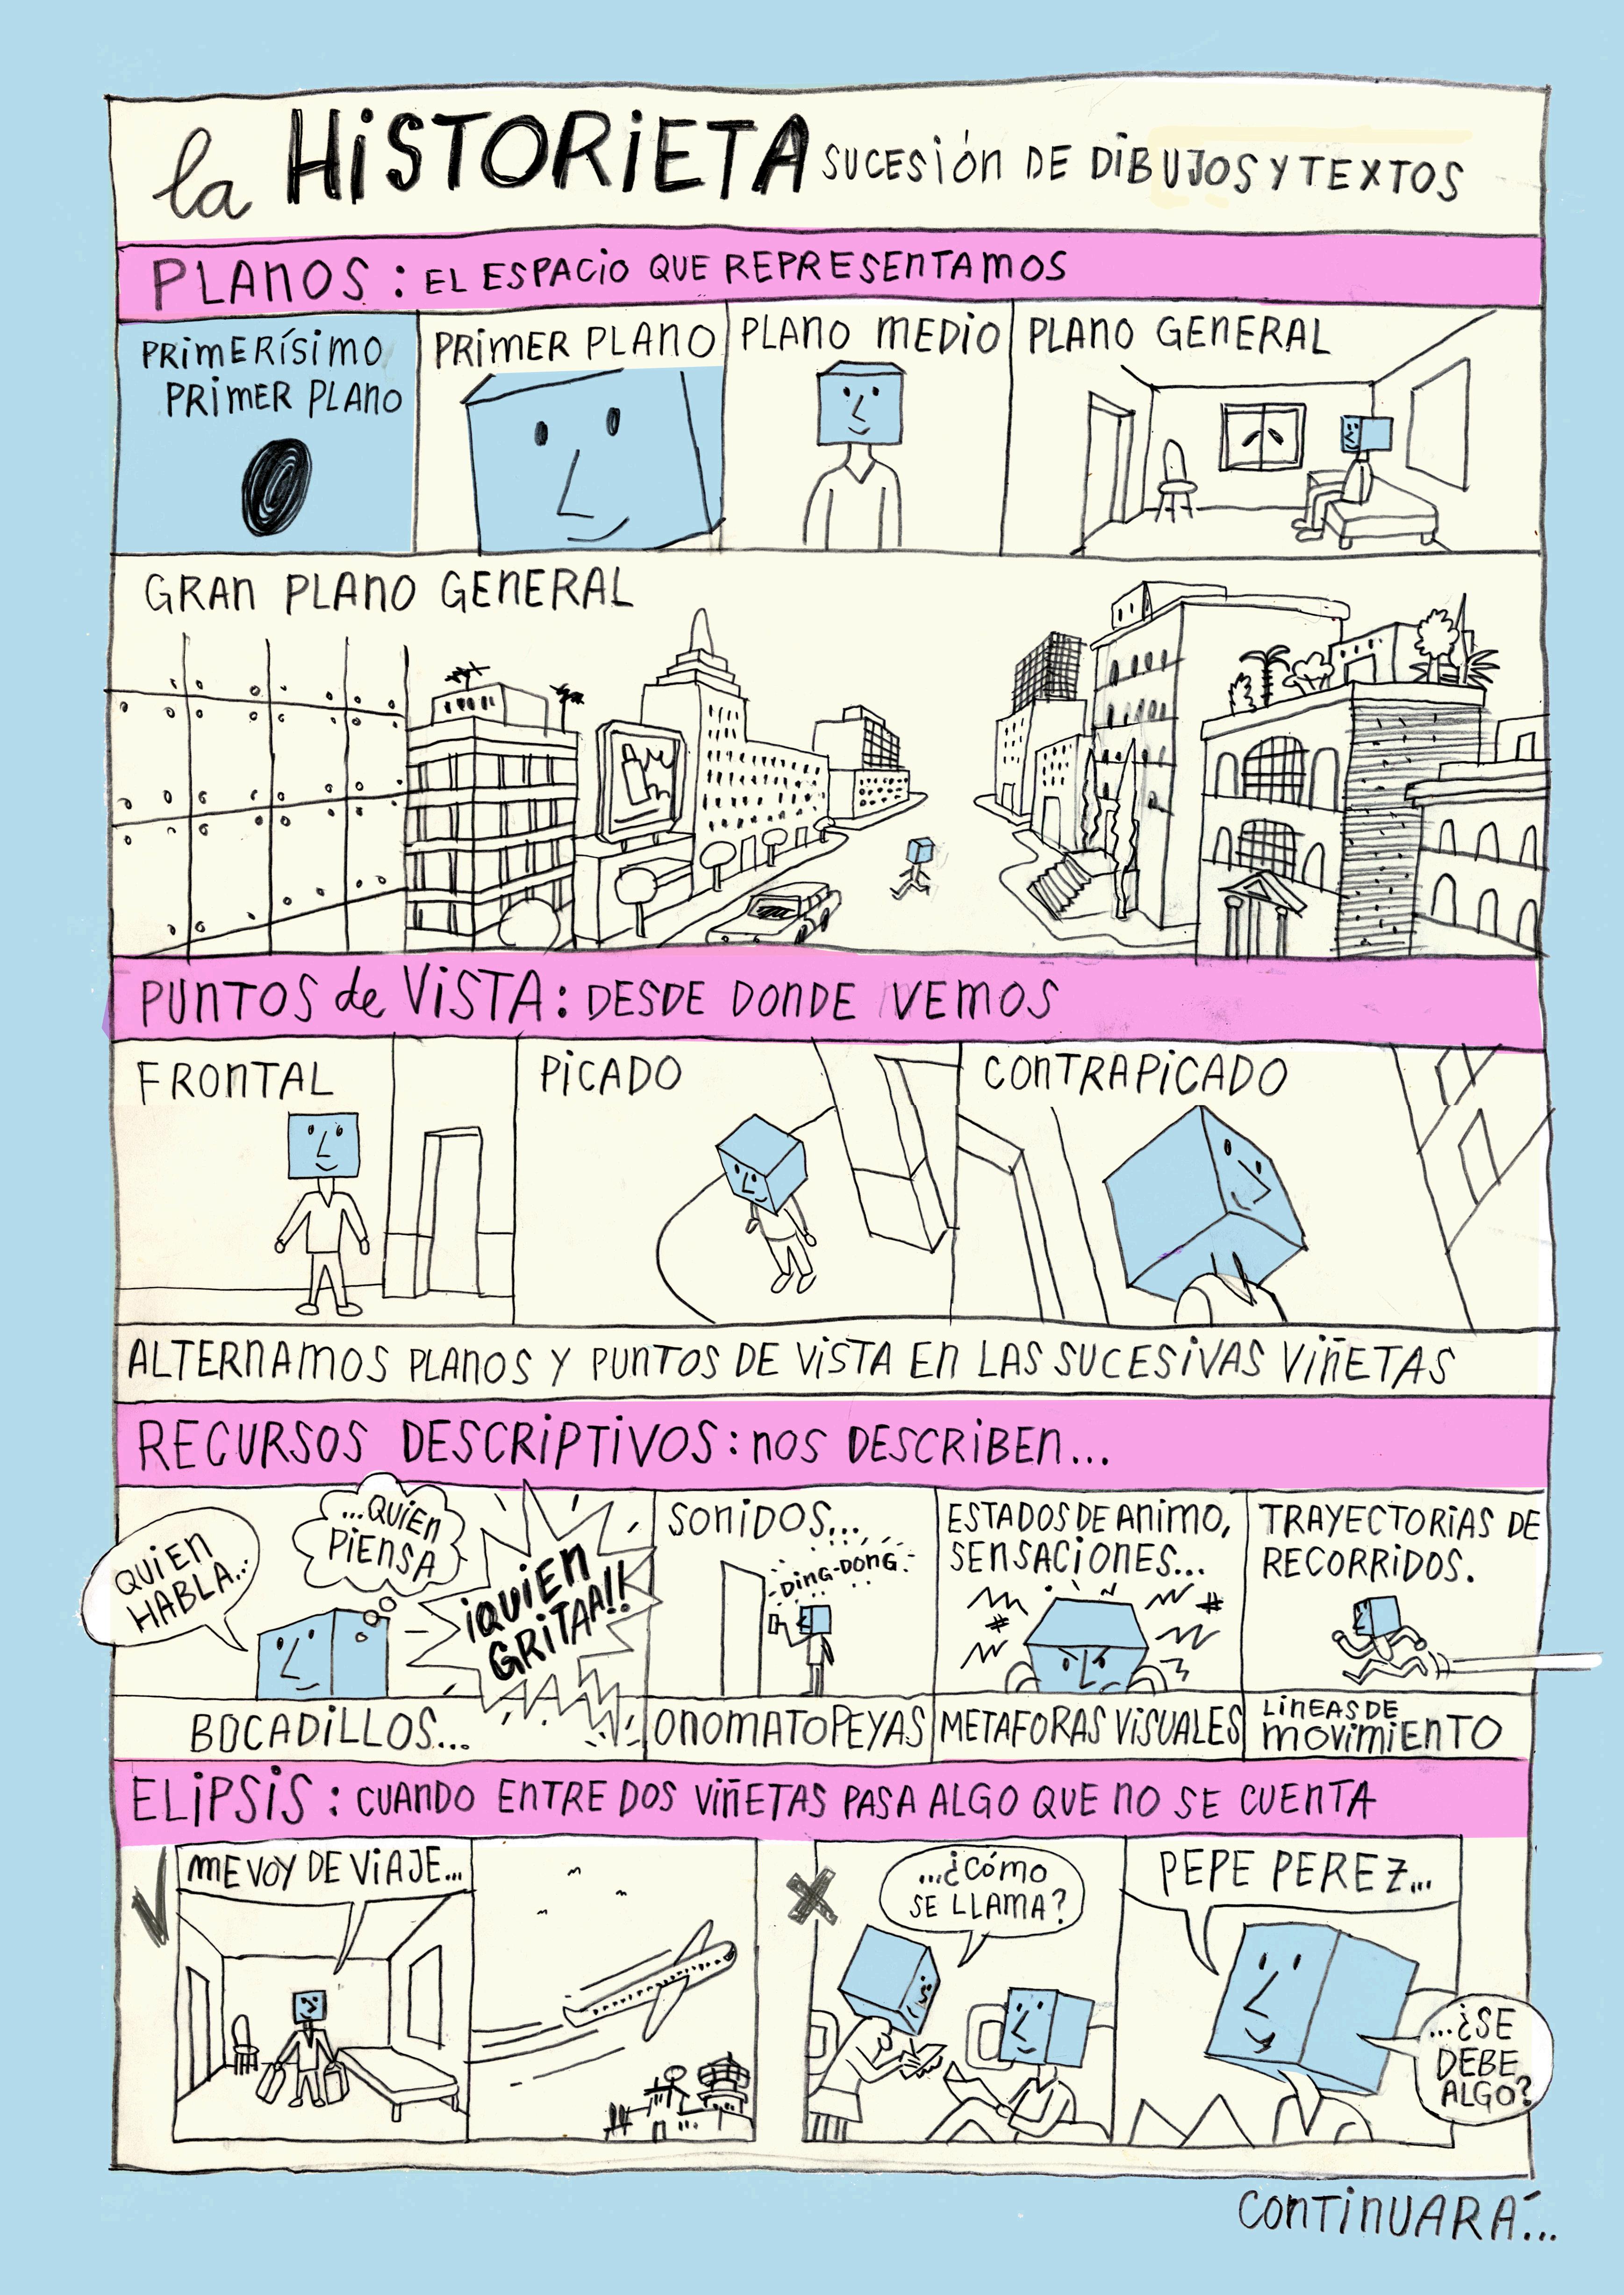 la HISTORIETA SUCESIÓN DE DIBUJOS Y TEXTOS
PLANOS: EL ESPACIO QUE REPRESENTAMOS
PRIMERÍSIMO
PRIMER PLANO
PRIMER PLANO
PLANO MEDIO
PLANO GENERAL
GRAN PLANO GENERAL
PUNTOS de VISTA: DESDE DONDE VEMOS
FRONTAL
PICADO
CONTRAPICADO
ALTERNAMOS PLANOS Y PUNTOS DE VISTA EN LAS SUCESIVAS VIÑETAS
RECURSOS DESCRIPTIVOS: NOS DESCRIBEN...
QUIEN
HABLA...
...QUIEN
PIENSA
¡QUIEN
GRITAA!!
BOCADILLOS...
SONIDOS...
DING-DONG
ONOMATOPEYAS
ESTADOS DE ANIMO,
SENSACIONES...
METAFORAS VISUALES
TRAYECTORIAS DE
RECORRIDOS.
LINEAS DE
MOVIMIENTO
ELIPSIS: CUANDO ENTRE DOS VIÑETAS PASA ALGO QUE NO SE CUENTA
ME VOY DE VIAJE...
...¿CÓMO
SE LLAMA?
PEPE PEREZ...
...¿SE
DEBE
ALGO?
CONTINUARÁ...